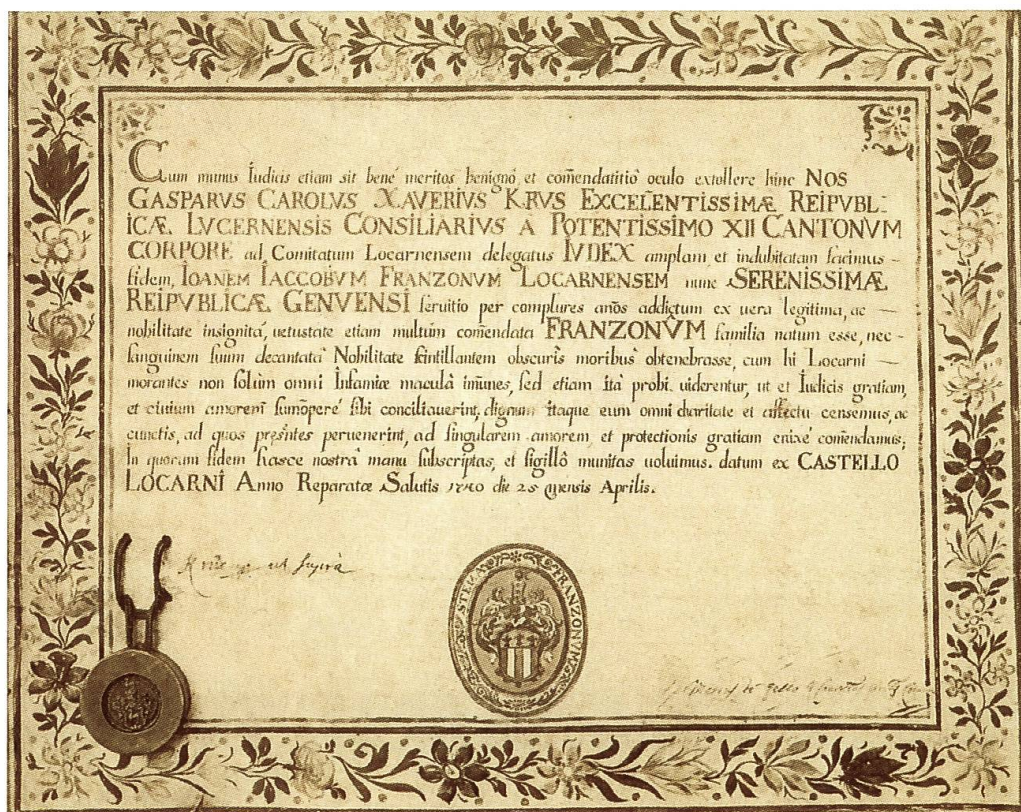 Cum munus Iudicis etiam sit bene meritos benigno, et com̃endatitio oculo extollere hinc NOS
GASPARVS CAROLVS XAVERIVS KRVS EXCELENTISSIMÆ REIPVBL-
ICÆ LVCERNENSIS CONSILIARIVS A POTENTISSIMO XII CANTONVM
CORPORE ad Comitatum Locarnensem delegatus IVDEX amplam et indubitatam facimus
fidem, IOANEM IACCOBVM FRANZONVM LOCARNENSEM nunc SERENISSIMÆ
REIPVBLICÆ GENVENSI seruitio per complures años addictum ex uera legitima, ac
nobilitate insignita, uetustate etiam multum com̃endata FRANZONVM familia natum esse, nec
sanguinem suum decantata Nobilitate scintillantem obscuris moribus obtenebrasse, cum hi Locarni
morantes non solùm omni Infamiæ maculâ im̃unes, sed etiam ità probi uiderentur, ut et Iudicis gratiam,
et ciuium amorem sum̃operé sibi conciliauerint, dignum itaque eum omni charitate et affectu censemus, ac
cunctis, ad quos preśntes peruenerint, ad singularem amorem, et protectionis gratiam enixé com̃endamus,
In quorum fidem hasce nostra manu subscriptas, et sigillô munitas uoluimus. datum ex CASTELLO
LOCARNI Anno Reparatæ Salutis 1740 die 25 mensis Aprilis.
ut supra
STEM FRANZONVM